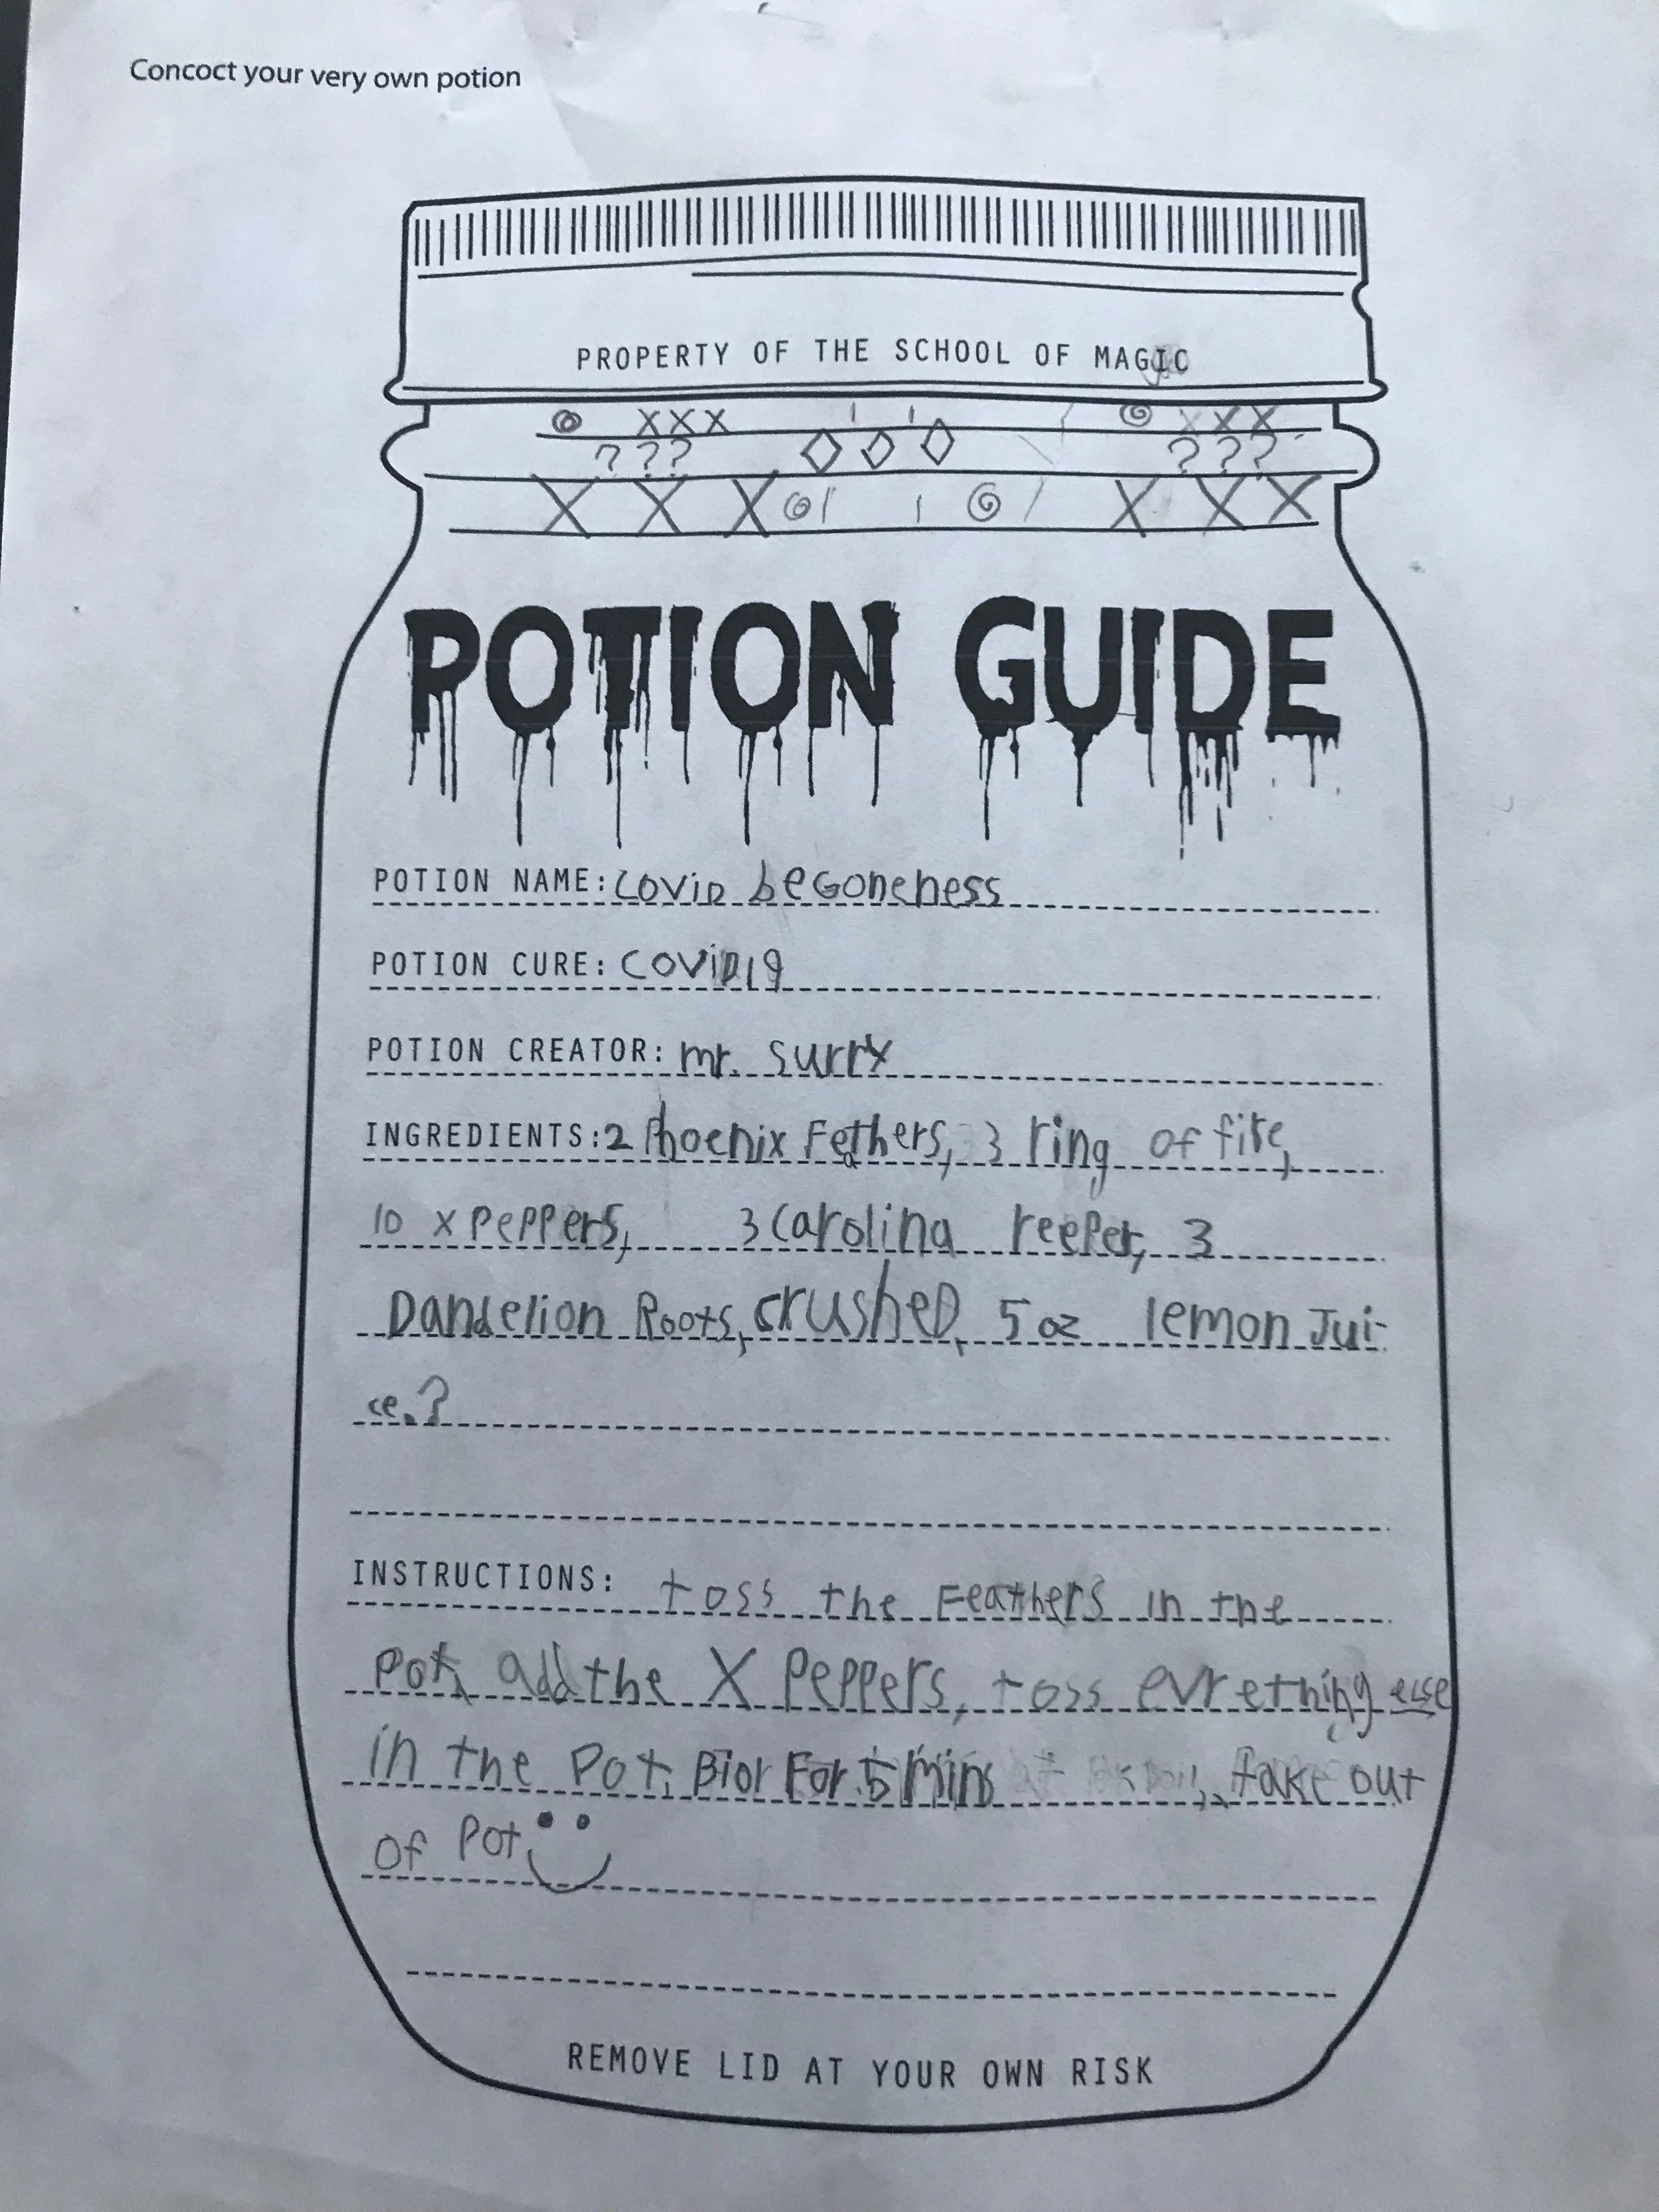 Concoct your very own potion
PROPERTY OF THE SCHOOL OF MAGIC
XXX XXX
??? ???
X X X X X X
POTION GUIDE
POTION NAME: COVID beGoneness
POTION CURE: COVID19
POTION CREATOR: mr. surry
INGREDIENTS: 2 Phoenix Fethers, 3 ring of fire,
10 x PePPers, 3 Carolina reeper, 3
Dandelion Roots, crusheD, 5 oz lemon Jui-
ce.?
INSTRUCTIONS: toss the Feathers in the
Pot, add the X PePPers, toss evrething else
in the Pot, Biol For 5 Mins, take out
of Pot
REMOVE LID AT YOUR OWN RISK